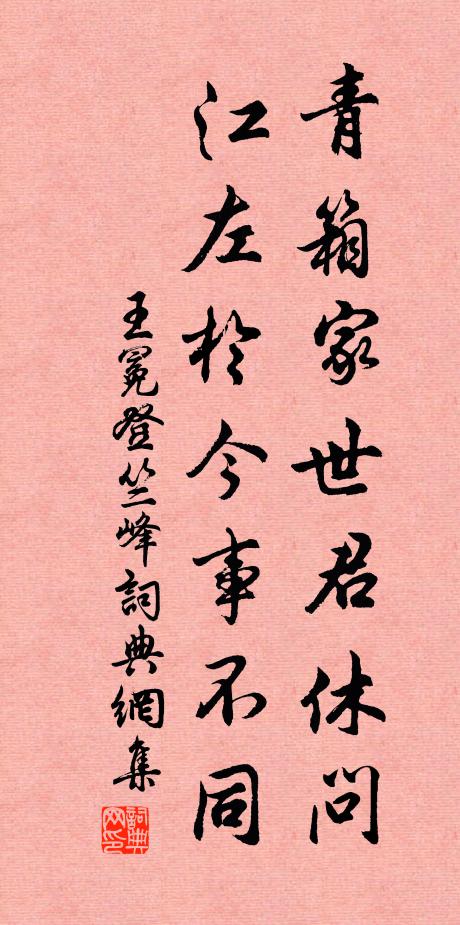 青箱家世君休問
江左於今事不同
王冕登竺峰詞典網集
詞典网印